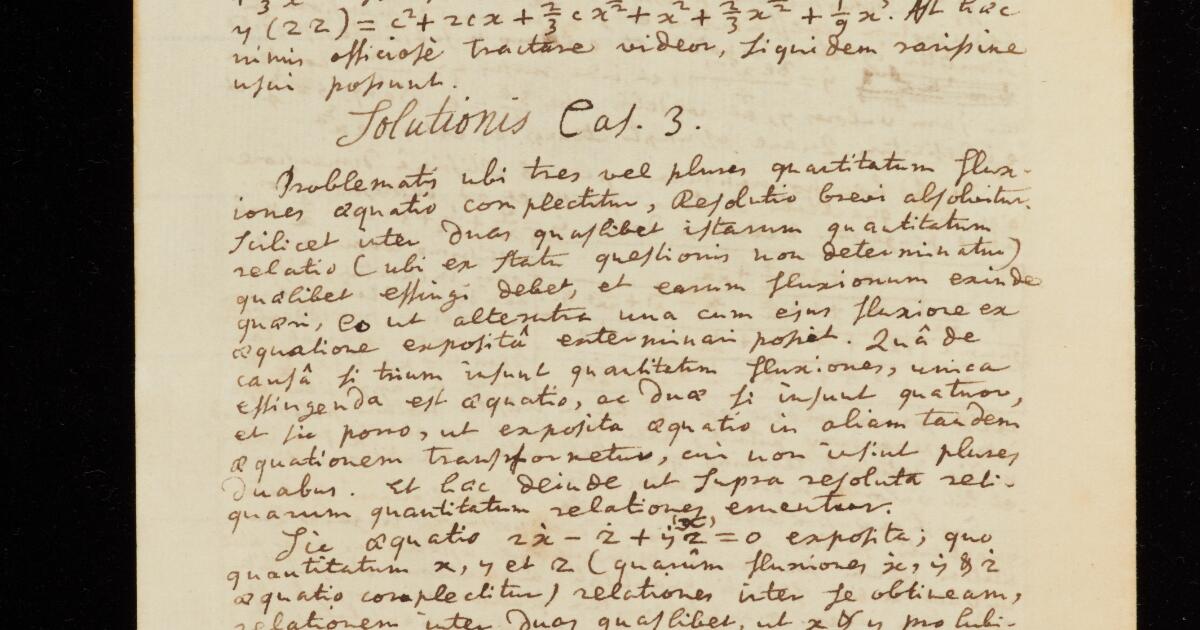 y (2z) = c² + 2cx + ⅔ cx² + x² + ⅔ x² + 1/9 x³. At hæc
nimis officiosè tractare videor, siquidem rarissime
usui possunt.
Solutionis Cas. 3.
Problematis ubi tres vel plures quantitatum flux-
iones æquatio complectitur, Resolutio brevi absolvitur.
Scilicet inter duas quaslibet istarum quantitatum
relatio (ubi ex statu questionis non determinatur)
quælibet effingi debet, et earum fluxionum exinde
quæri, eo ut alterutra una cum ejus fluxione ex
æquatione expositâ exterminari possit. Quâ de
causâ si trium insunt quantitatum fluxiones, unica
effingenda est æquatio, ac duæ si insunt quatuor,
et sic porro, ut exposita æquatio in aliam tandem
æquationem transformetur, cui non insint plures
duabus. Et hac deinde ut supra resoluta reli-
quarum quantitatum relationes eruentur.
Sic æquatio 2ẋ − ż + ẏx = 0 exposita; quo
quantitatum x, y et z (quarum fluxiones ẋ, ẏ & ż
æquatio complectitur) relationes inter se obtineam,
relationem inter duas quaslibet, ut x & y pro lubi-